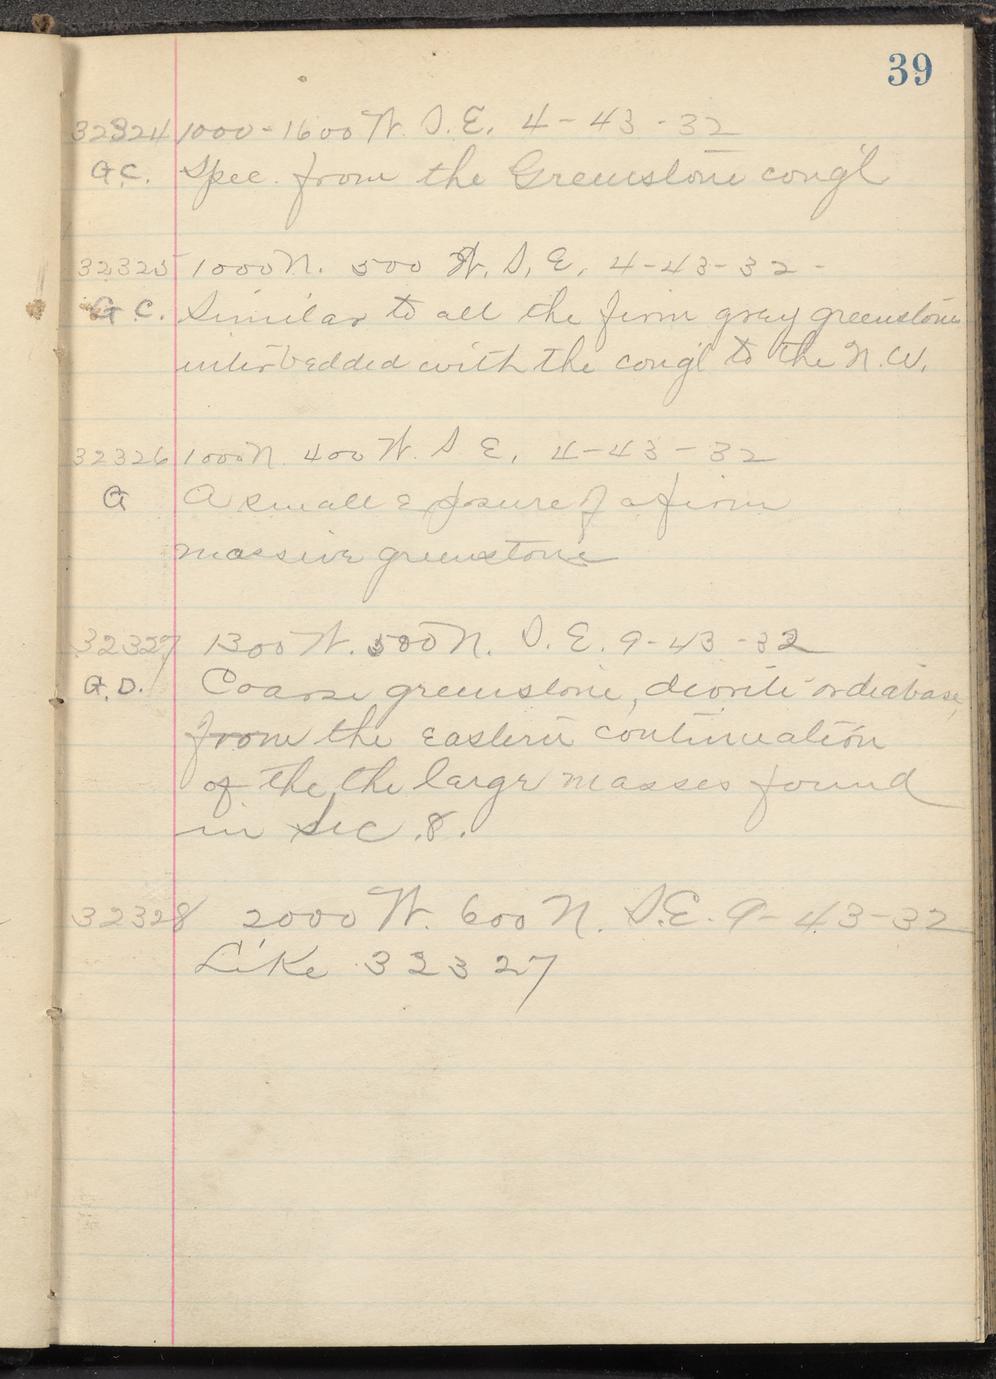 39
32324 1000 - 1600 W. S. E. 4 - 43 - 32
G.C. Spec. from the Greenstone congl
32325 1000 N. 500 W. S. E. 4 - 43 - 32 -
G C. Similar to all the firm gray greenstone
interbedded with the congl to the N. W.
32326 1000 N. 400 W. S E. 4 - 43 - 32
G A small exposure of a firm
massive greenstone
32327 1300 W. 500 N. S. E. 9 - 43 - 32
G. D. Coarse greenstone, diorite or diabase,
from the eastern continuation
of the the large masses found
in Sec. 8.
32328 2000 W. 600 N. S.E. 9 - 43 - 32
Like 32327